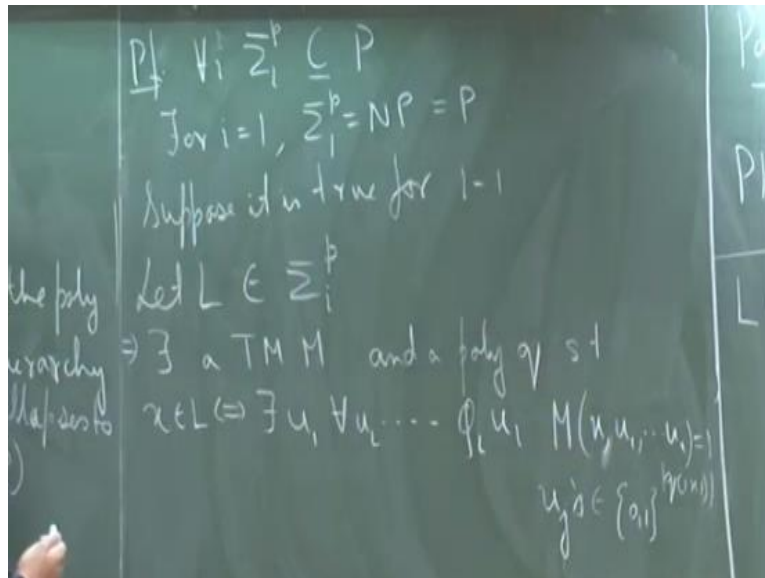 Pf. ∀i Σ_i^p ⊆ P
For i=1, Σ_1^p = NP = P
Suppose it is true for i-1
Let L ∈ Σ_i^p
⇒ ∃ a TM M and a poly q s t
x∈L ⇔ ∃u_1 ∀u_2 .... Q_i u_i M(x, u_1, .. u_i)=1
u_j's ∈ {0,1}^q(|x|)
the poly
erarchy
llapses to
)
Po
P
L